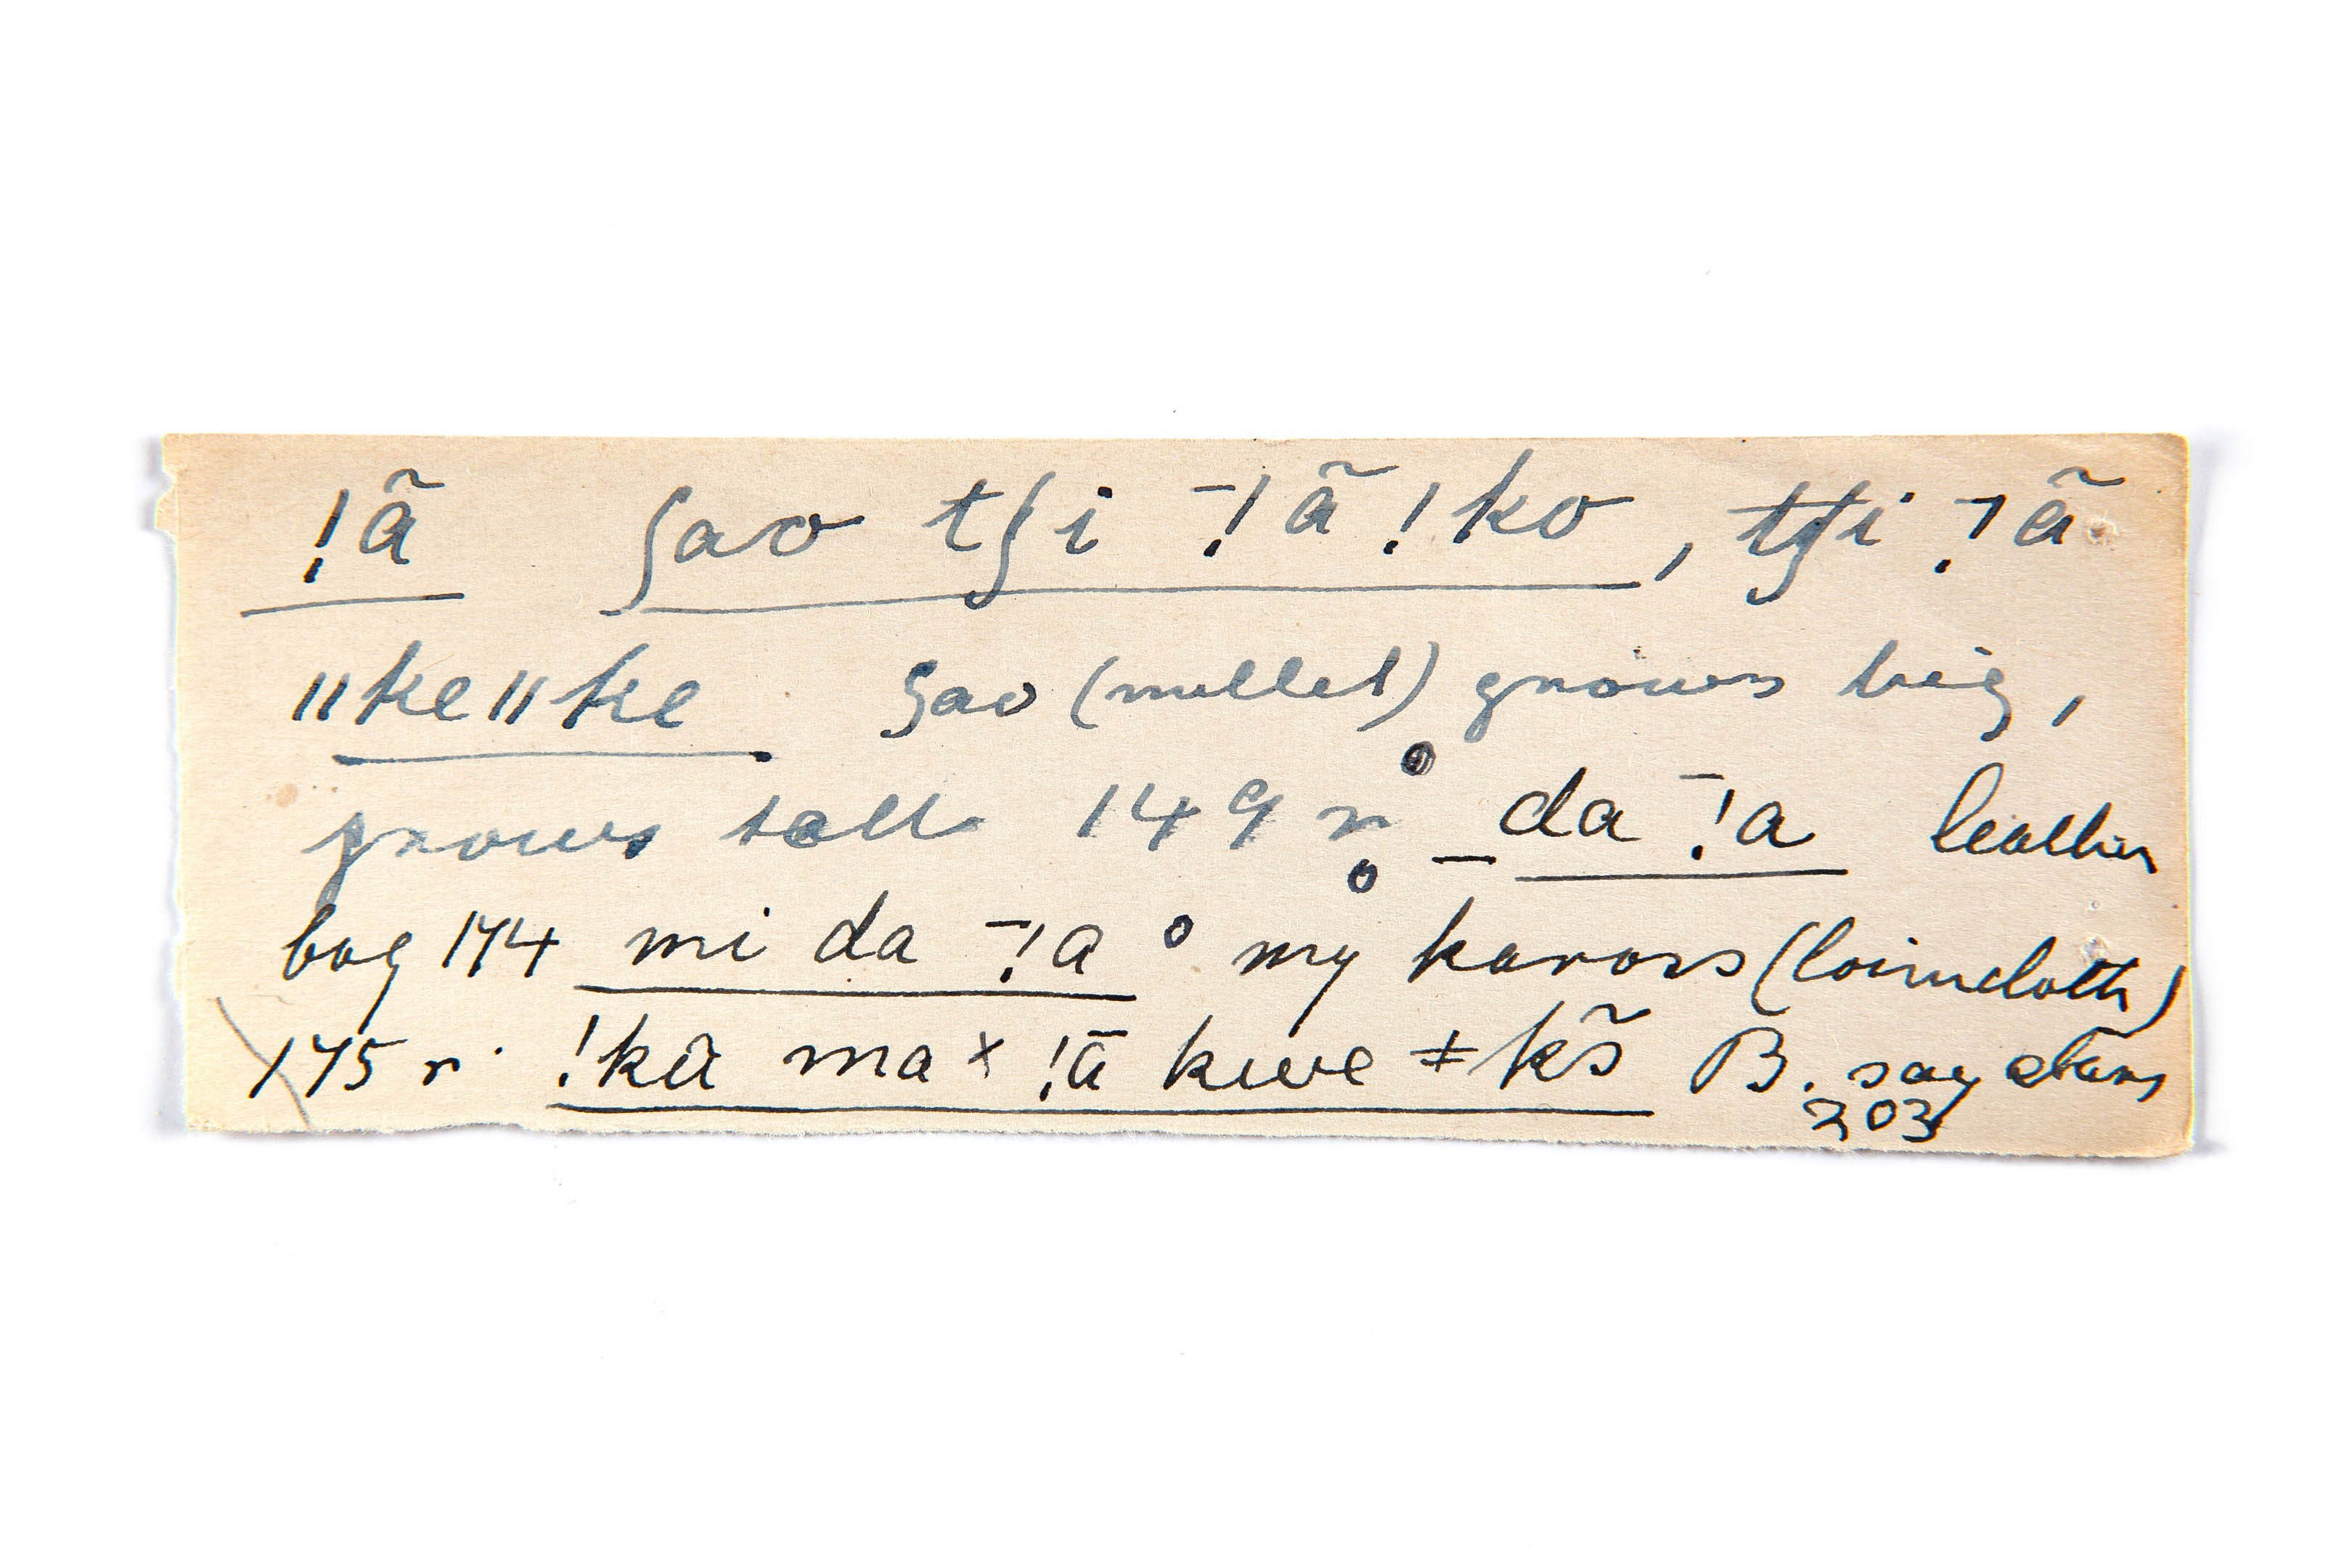 !ã ʃao tʃi ‾!ã !ko, tʃi ‾!ã
ǁkeǁke ʃao (millet) grows big,
grows tall 149 r _ da ‾!a leather
bag 174 mi da ‾!a ° my kaross (loincloth)
175 r. !kã ma × !ā kwe ǂkš̃ B. say
203